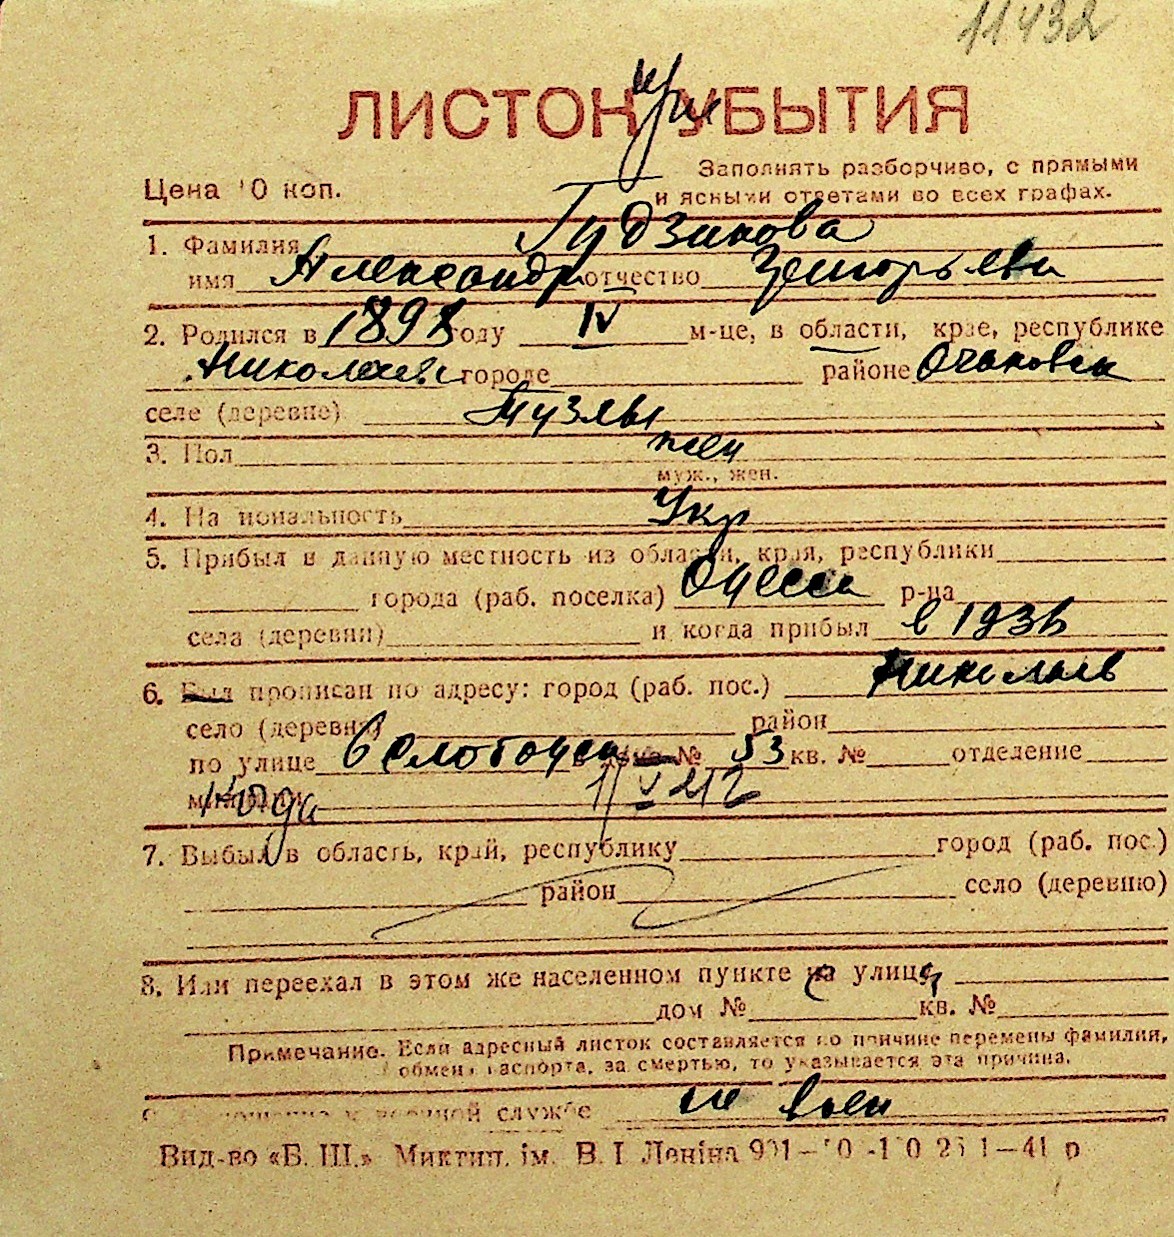 11432
ЛИСТОК УБЫТИЯ
при
Заполнять разборчиво, с прямыми
Цена 10 коп.
и ясными ответами во всех графах.
1. Фамилия Гудзикова
имя Александр отчество Григорьевн
2. Родился в 1898 году IV м-це, в области, крае, республике
Николаев городе районе Очаковск
селе (деревне) Тузлы
3. Пол жен
муж., жен.
4. Национальность Укр
5. Прибыл в данную местность из области, края, республики
города (раб. поселка) Одесса р-на
села (деревни) и когда прибыл в 1936
6. Был прописан по адресу: город (раб. пос.) Николаев
село (деревня) район
по улице Слободск дом № 53 кв. № отделение
когда 1/V 212
7. Выбыл в область, край, республику город (раб. пос.)
район село (деревню)
8. Или переехал в этом же населенном пункте на улицу
дом № кв. №
Примечание. Если адресный листок составляется по причине перемены фамилии,
обмена паспорта, за смертью, то указывается эта причина.
9. Отношение к военной службе не воен
Вид-во «Б. Ш.» Миктип. ім. В. І Леніна